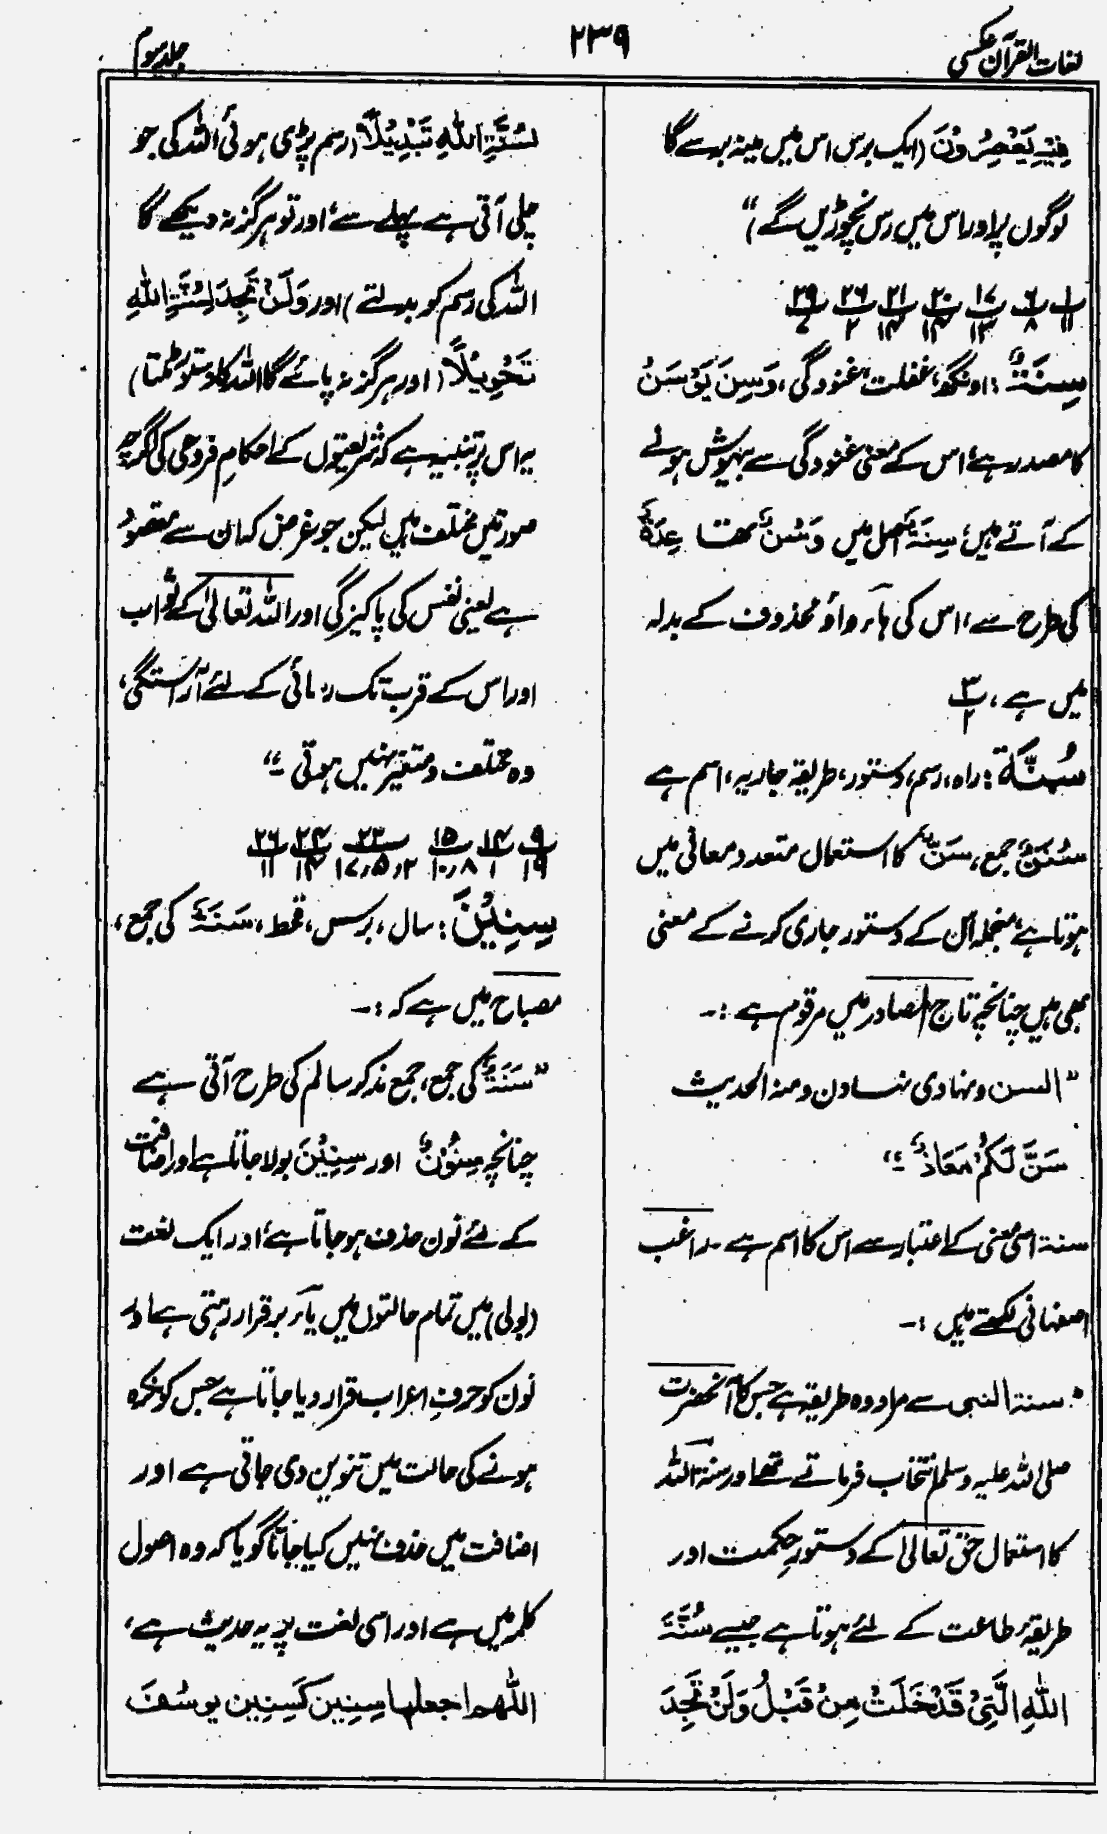 لغات القرآن عکسی
۲۳۹
جلد سوم
فِیْہِ یَعْصِرُوْنَ (ایک برس اس میں مینہ برسے گا
لوگوں پر اور اس میں رس نچوڑیں گے)“
<u>۱</u>/۱۱ <u>۶</u>/۸ <u>۱۷</u>/۱۳ <u>۲۰</u>/۱۴ <u>۲۱</u>/۱۴ <u>۲۶</u>/۲ <u>۲۹</u>/۷
سِنَۃٌ: اونگھ، غفلت، غنودگی، وَسِنَ یَوْسَنُ
کا مصدر ہے، اس کے معنی غنودگی سے بیہوش ہونے
کے آتے ہیں، سِنَۃٌ اصل میں وَسَنٌ تھا عِدَۃٌ
کی طرح سے، اس کی ہاء واؤ محذوف کے بدلہ
میں ہے، <u>۳</u>/۲
سُنَّۃ: راہ، رسم، دستور، طریقہ جاریہ، اسم ہے
سُنَنٌ جمع، سَنّ کا استعمال متعدد معانی میں
ہوتا ہے، منجملہ ان کے دستور جاری کرنے کے معنی
بھی ہیں چنانچہ تاج المصادر میں مرقوم ہے :۔
”السن و نہادی نہادن ومنہ الحدیث
سَنَّ لَکُمْ مَعَاذٌ“
سنۃ اسی معنی کے اعتبار سے اس کا اسم ہے۔ راغب
اصفہانی لکھتے ہیں :۔
سنۃ النبی سے مراد وہ طریقہ ہے جس کا آنحضرت
صلی اللہ علیہ وسلم انتخاب فرماتے تھے اور سنۃ اللہ
کا استعمال حق تعالیٰ کے دستورِ حکمت اور
طریقۂ طاعت کے لئے ہوتا ہے جیسے سُنَّۃَ
اللہِ الَّتِیْ قَدْ خَلَتْ مِنْ قَبْلُ وَلَنْ تَجِدَ
لِسُنَّۃِ اللہِ تَبْدِیْلًا (رسم پڑی ہوئی اللہ کی جو
چلی آتی ہے پہلے سے، اور تو ہرگز نہ دیکھے گا
اللہ کی رسم کو بدلتے) اور وَلَنْ تَجِدَ لِسُنَّۃِ اللہِ
تَحْوِیْلًا (اور ہرگز نہ پائے گا اللہ کا دستور ٹلتا)
یہ اس پر تنبیہ ہے کہ شریعتوں کے احکامِ فروعی کی اگرچہ
صورتیں مختلف ہیں لیکن جو غرض کہ ان سے مقصود
ہے یعنی نفس کی پاکیزگی اور اللہ تعالیٰ کے ثواب
اور اس کے قرب تک رسائی کے لئے آراستگی،
وہ مختلف و متغیر نہیں ہوتی ۔“
<u>۹</u>/۱۹ <u>۱۴</u>/۱ <u>۱۵</u>/۸٫۱۰ <u>۲۲</u>/۲٫۵٫۱۷ <u>۲۴</u>/۱۴ <u>۲۶</u>/۱۱
سِنِیْنَ: سال، برس، قحط، سَنَۃٌ کی جمع،
مصباح میں ہے کہ :۔
”سَنَۃٌ کی جمع، جمع مذکر سالم کی طرح آتی ہے
چنانچہ سِنُوْنَ اور سِنِیْنَ بولا جاتا ہے اور اضافت
کے لئے نون حذف ہو جاتا ہے، اور ایک لغت
(بولی) میں تمام حالتوں میں یاء برقرار رہتی ہے اور
نون کو حرفِ اعراب قرار دیا جاتا ہے جس کو نکرہ
ہونے کی حالت میں تنوین دی جاتی ہے اور
اضافت میں حذف نہیں کیا جاتا گویا کہ وہ اصول
کلمہ میں ہے اور اسی لغت پر یہ حدیث ہے،
اللّٰھم اجعلہا سِنِین کَسِنِین یوسُفَ